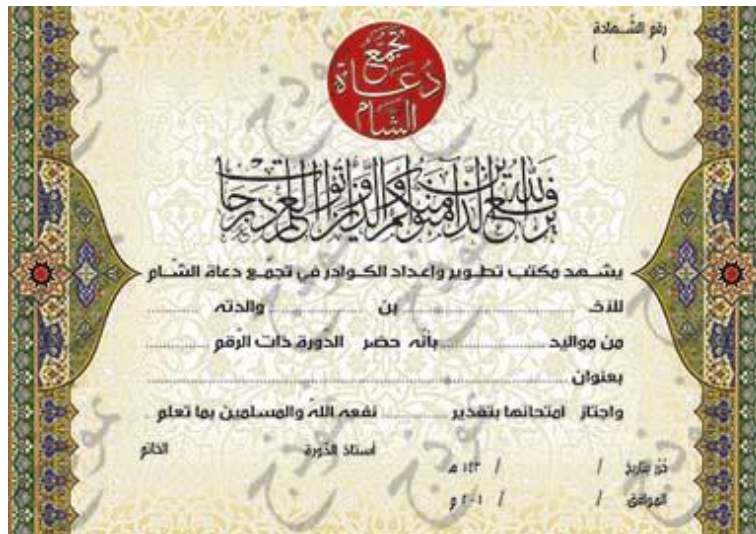 رقم الشَّهادة
( )
تجمع
دعاة
الشام
يرفع الله الذين آمنوا منكم والذين أوتوا العلم درجات
يشهد مكتب تطوير وإعداد الكوادر في تجمّع دعاة الشّام
للأخ ........ بن ........ والدته ........
من مواليد ........ بأنّه حضر الدّورة ذات الرّقم ........
بعنوان ........
واجتاز امتحانها بتقدير ........ نفعه اللهُ والمسلمين بما تعلم
أستاذ الدّورة الخاتم
حُرّر بتاريخ / / ١٤٣ هـ
الموافق / / ٢٠١ م